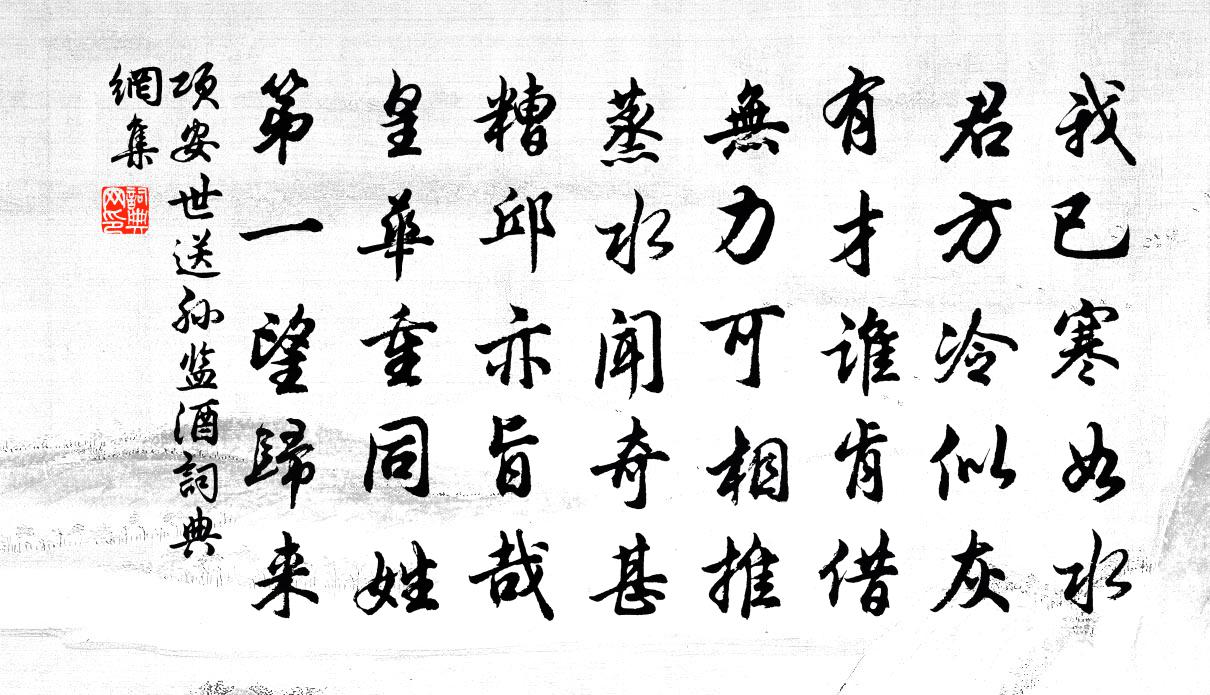 我已寒如水
君方冷似灰
有才谁肯借
無力可相推
蒸水闻奇甚
糟邱亦旨哉
皇華重同姓
第一望歸来
项安世送孙监酒詞典
網集
詞典
网印